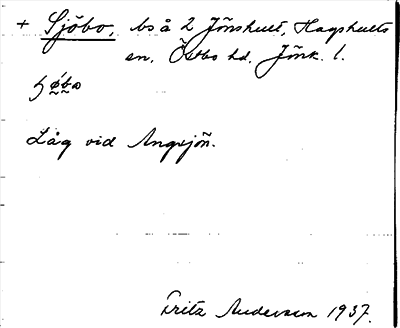 + Sjöbo, bs å 2 Jönshult, Hagshults
sn, Östbo hd. Jönk. l.
Låg vid Angsjön.
Fritz Anderson 1937.